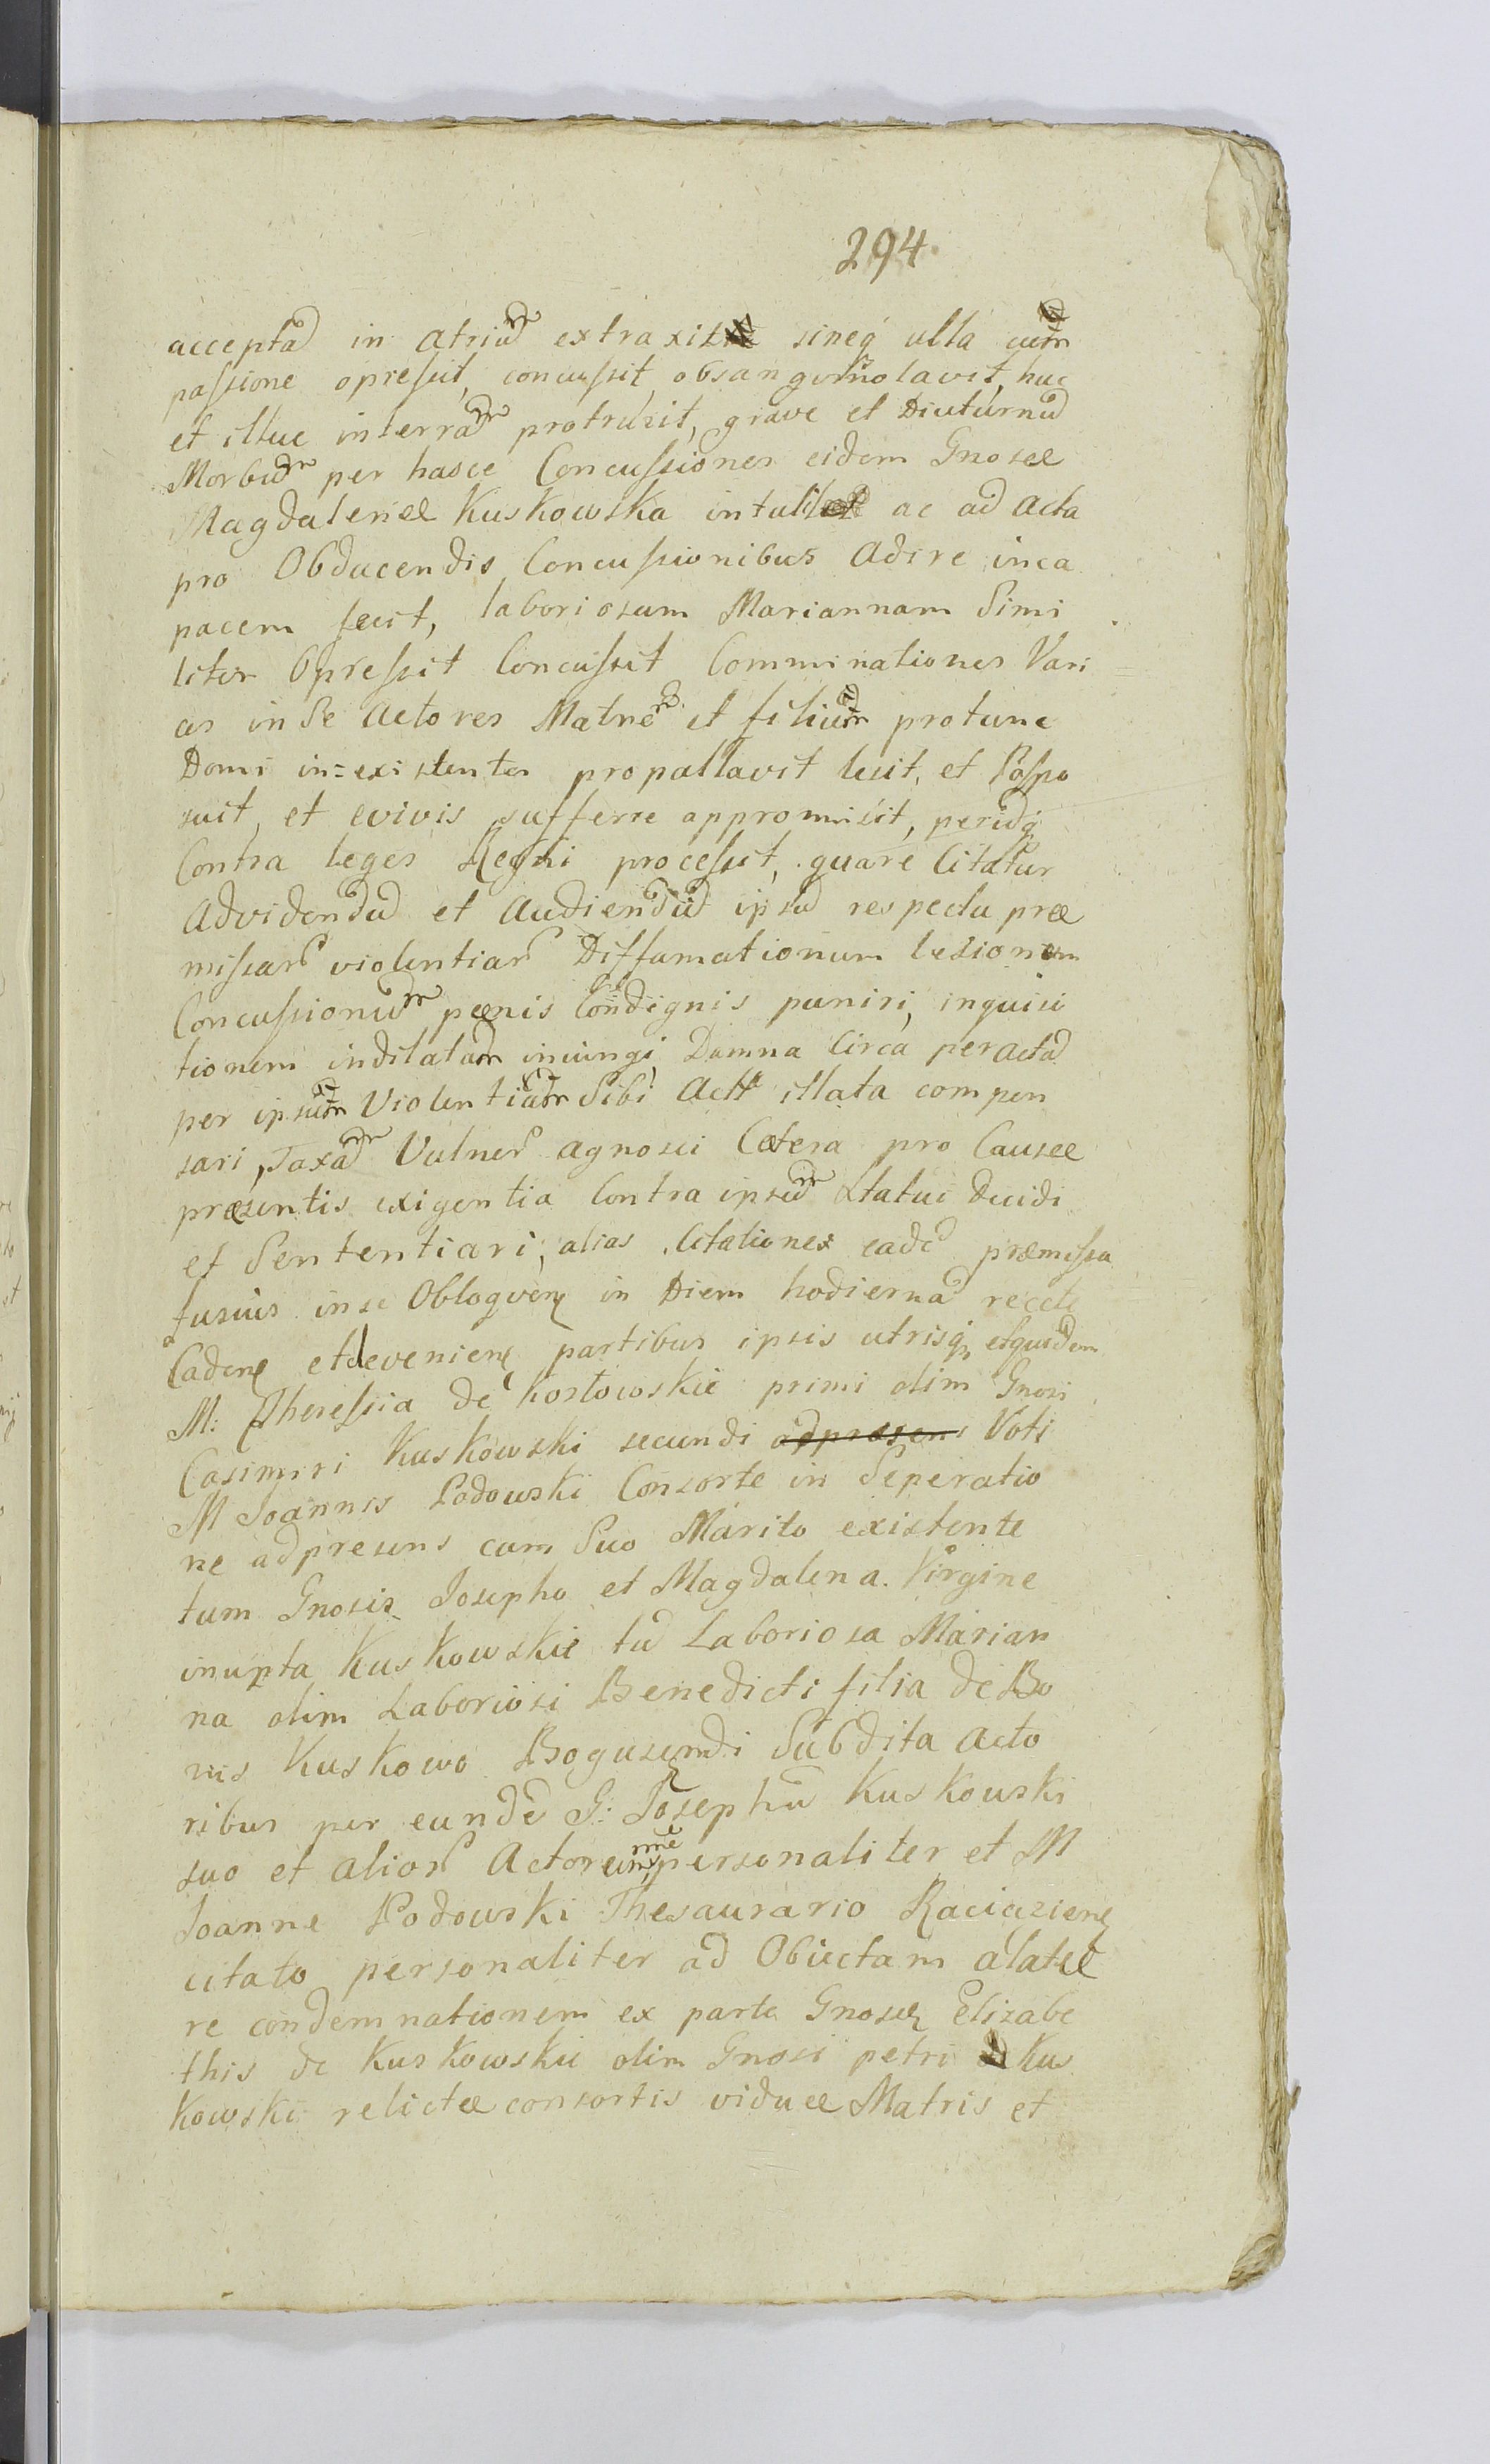 294.
acceptã in atriũ extraxit sineq́ ulla cum
paſsione opreſsit, concuſsit obsanguinolavit, huc
et illuc interrã protrusit, grave et Diuturnũ
Morbũ per hasce Concuſsiones eidem Gnosæ
Magdalenæ Kuskowska intulit ac ad acta
pro Obducendis Concuſsionibus Adire inca
pacem fecit, laboriosam Mariannam Simi
liter Opreſsit Concuſsit Comminationes Vari
as in Se Actores Matrẽ et filium protunc
Domi in=existentes propallavit lesit, et Poſpo
suit, et evivis sufferre appromisit, peridq́
Contra leges Regni proceſsit, quare Citatur
Advidendũ et Audiendũ ipsũ respectu præ
miſsar̃ violentiar̃ Diffamationum lesionum
Concuſsionũ pænis Condignis puniri, inquisi
tionem indilatam iniungi Damna Circa peractã
per ipsum Violentiam Sibi Act illata compen
sari, Taxã Vulner̃ agnosci Cætera pro Causæ
præsentis exigentia Contra ipsũ Statui Decidi
et Sententiari, alias Citationes eadẽ præmiſsa
fusius inse Obloquen in Diem hodiernã recte
Caden et devenien partibus ipsis utrisq́ etquidem
M: Thereſsia de Kosłowskie primi olim Gnosi
Casimiri Kuskowski secundi adpræsens Voti
M Joannis Podowski Consorte in Seperatio
ne adpresens cum Suo Marito existente
tum Gnosis Josepho et Magdalena Virgine
inupta Kuskowskie tũ Laboriosa Marian
na olim Laboriosi Benedicti filia de Bo
nis Kuskowo Subdita Acto
ribus per eundẽ G: Josephũ Kuskowski
suo et alior̃ Actorum nõe personaliter et M
Joanne Podowski Thesaurario Raciązien
citato personaliter ad Obiectam alatæ
re condemnationem ex parte Gnosæ Elizabe
this de Kuskowskie olim Gnosi petri Kus
kowski relictæ consortis viduæ Matris et